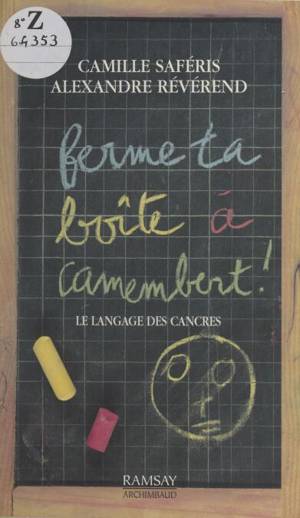 8° Z
64353
CAMILLE SAFÉRIS
ALEXANDRE RÉVÉREND
ferme ta
boîte à
camembert!
LE LANGAGE DES CANCRES
RAMSAY
ARCHIMBAUD